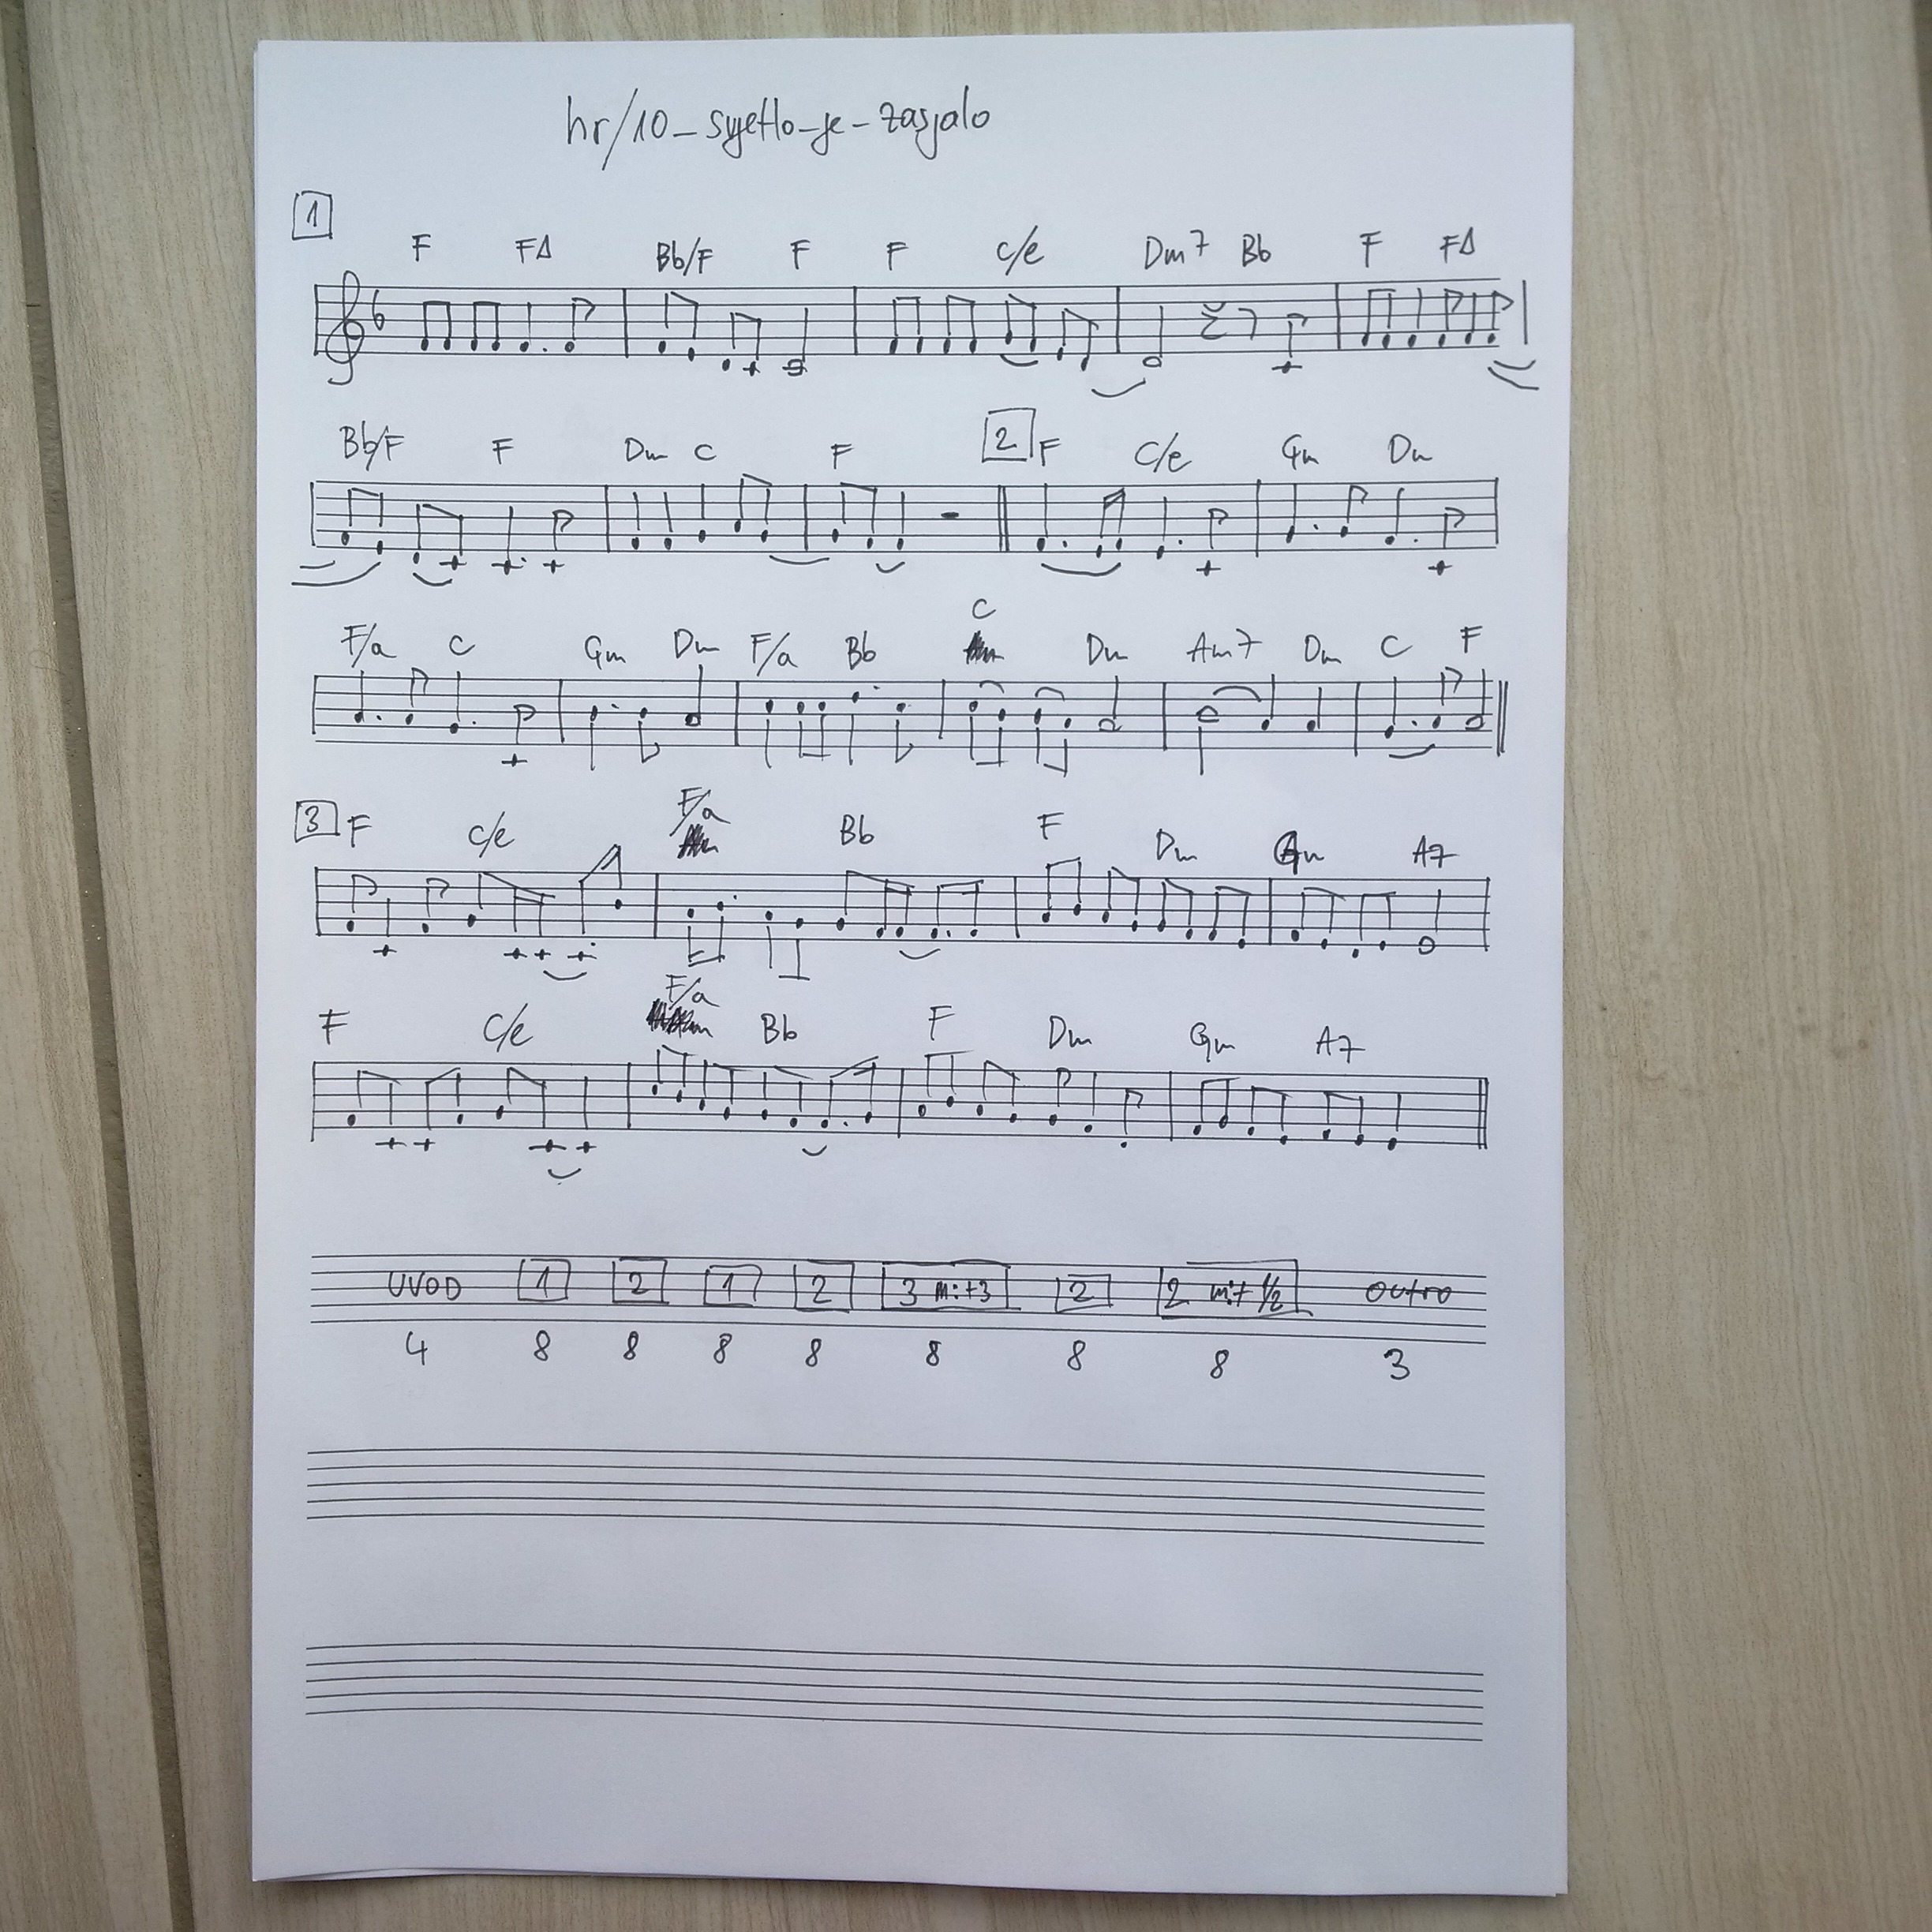 hr/10_svjetlo_je_zasjalo
1
F FΔ Bb/F F F C/e Dm7 Bb F FΔ
Bb/F F Dm C F 2 F C/e Gm Dm
F/a C Gm Dm F/a Bb C Dm Am7 Dm C F
3 F C/e F/a Bb F Dm Gm A7
F C/e F/a Bb F Dm Gm A7
UVOD 1 2 1 2 3 mit 3 2 2 mit 1/2 outro
4 8 8 8 8 8 8 8 3